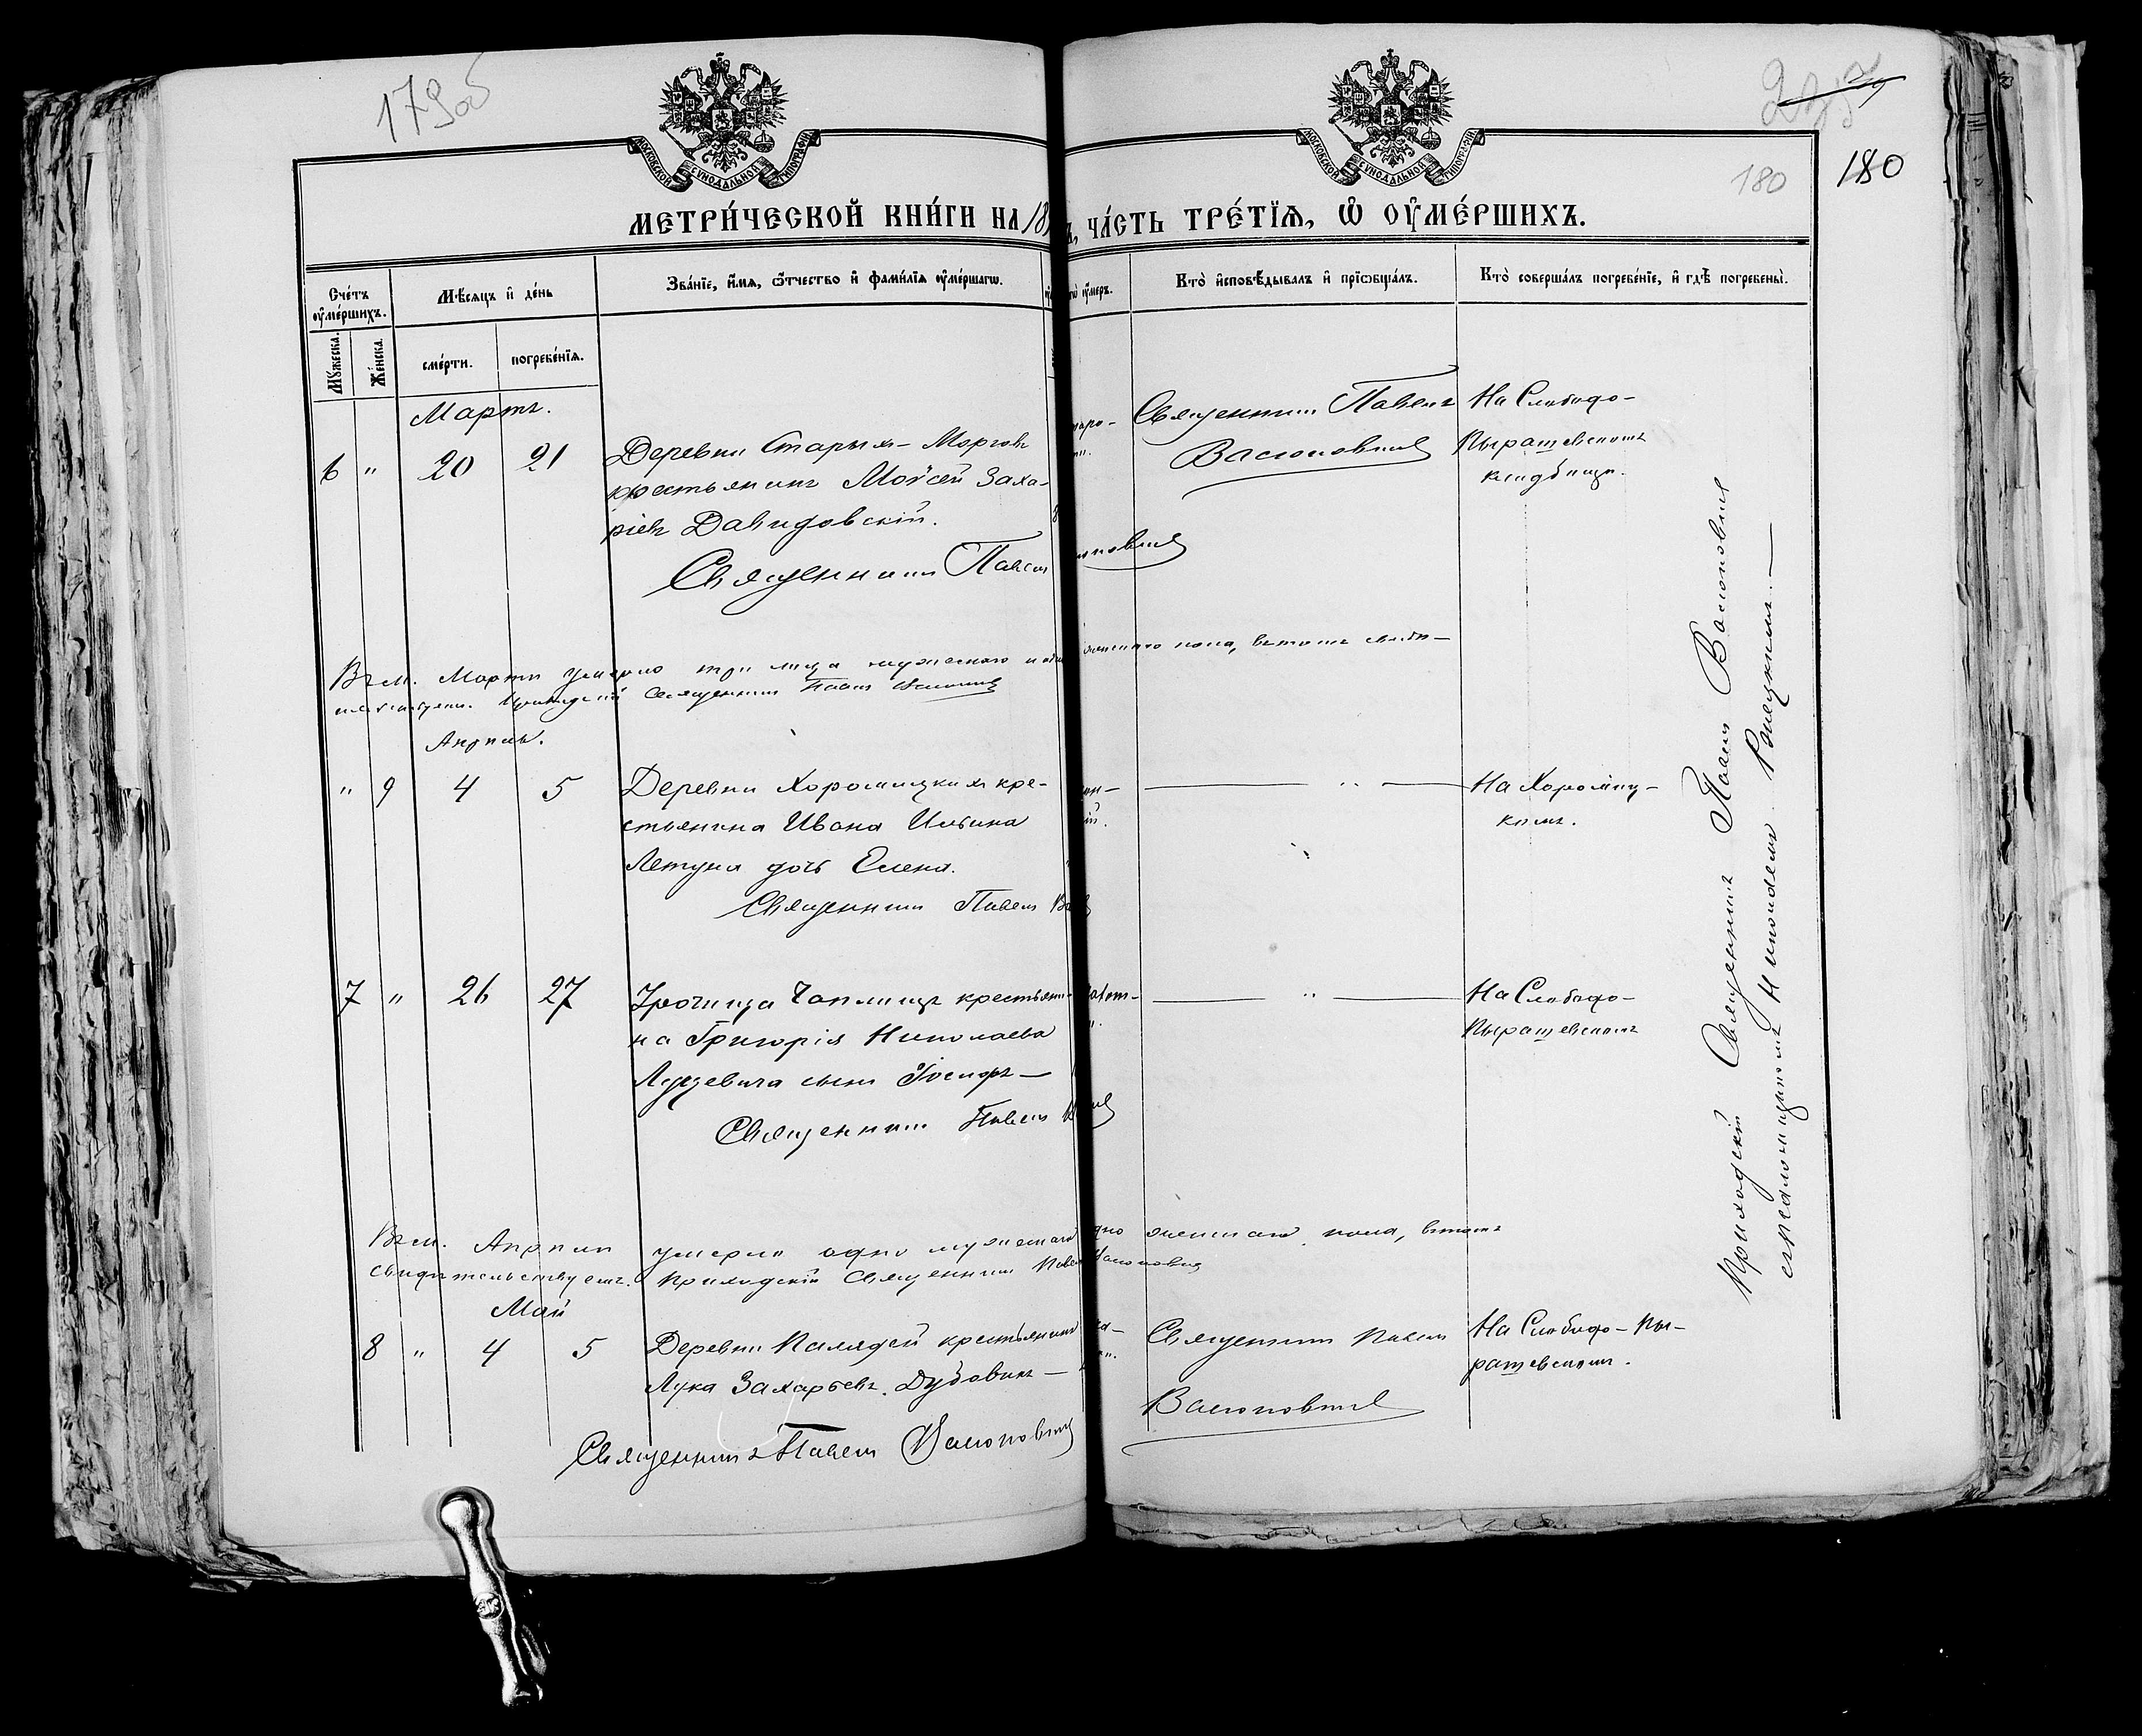 179об
180
180
МОСКОВСКОЙ СѴНОДАЛЬНОЙ ТИПОГРАФІИ
МОСКОВСКОЙ СѴНОДАЛЬНОЙ ТИПОГРАФІИ
МЕТРИ́ЧЕСКОЙ КНИ́ГИ НА 18
Ъ, ЧА́СТЬ ТРЕ́ТЇѦ, Ѽ ОУ҆МЕ́РШИХЪ.
Сче́тъ оу҆ме́ршихъ.
Мѣ́сяцъ и҆ де́нь
Зва́нїе, и҆́мѧ, ѻ҆́тчество и҆ фами́лїѧ оу҆ме́ршагѡ.
оу҆́меръ.
Кто̀ и҆сповѣ́дывалъ и҆ прїѡбща́лъ.
Кто̀ соверша́лъ погребе́нїе, и҆ гдѣ̀ погребены̀.
Мꙋ́жеска.
Же́нска.
сме́рти.
погребе́нїѧ.
Мартъ.
6 " 20 21
Деревни Старыхъ-Морговъ
крестьянинъ Моѵсей Заха-
ріевъ Давидовскій.
Священникъ Павелъ
Священникъ Павелъ
Васюковичъ
На Слободо-
Пырашевскомъ
кладбищѣ.
Въ м. Мартѣ умерло три лица мужескаго и
женскаго пола, въ томъ свидѣ-
Приходскій Священникъ Павелъ Васюковичъ
Апрѣль.
" 9 4 5
Деревни Хоромицкихъ кре-
стьянина Ивана Ильина
Летуна дочь Елена.
Священникъ Павелъ
"
На Хоромиц-
комъ.
7 " 26 27
Урочища Чаплищъ крестьяни-
на Григорія Николаева
Луцевича сынъ Іосифъ —
Священникъ Павелъ
"
На Слободо-
Пырашевскомъ
Въ м. Апрѣлѣ умерло одно мужескаго
одно женскаго пола, въ томъ
свидѣтельствуемъ. Приходскій Священникъ Павелъ Васюковичъ
Май
8 " 4 5
Деревни Калядей крестьянинъ
Лука Захарьевъ Дубовикъ —
Священникъ Павелъ Васюковичъ
Священникъ Павелъ
Васюковичъ
На Слободо-Пы-
рашевскомъ.
Приходскій Священникъ Павелъ Васюковичъ
съ псаломщикомъ Николаемъ